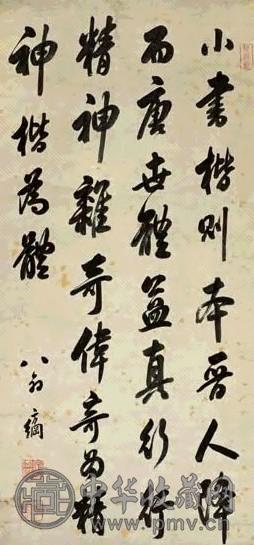 小書楷則本晉人降
而唐世體益真行行
精神雜奇偉奇為精
神楷為體
八
中华收藏网
www.pmv.cn